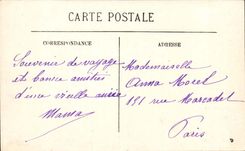 CARTE POSTALE
CORRESPONDANCE
ADRESSE
Souvenir de voyage
et bonne amitiés
d'une vieille amie
Mama
Mademoiselle
Anna Morel
191 rue Marcadet
Paris